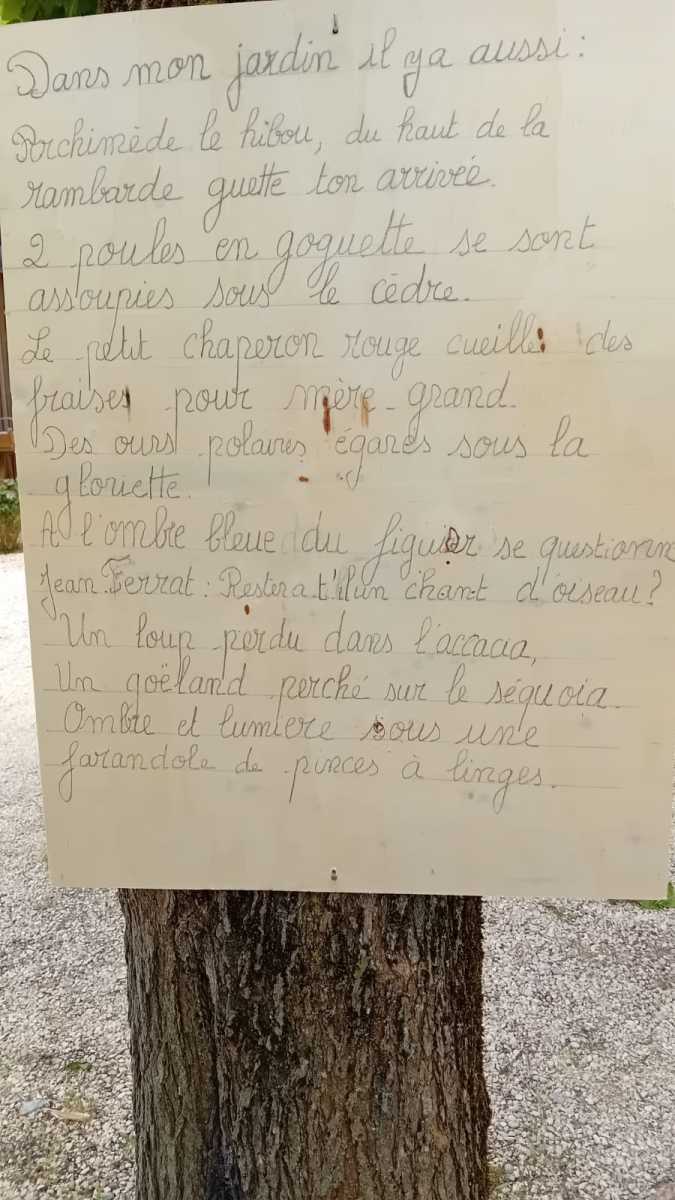 Dans mon jardin il ya aussi :
Archimède le hibou, du haut de la
rambarde guette ton arrivée.
2 poules en goguette se sont
assoupies sous le cèdre.
Le petit chaperon rouge cueille des
fraises pour mère-grand.
Des ours polaires égarés sous la
gloriette.
A l'ombre bleue du figuier se questionne
Jean Ferrat : Restera t'il un chant d'oiseau ?
Un loup perdu dans l'accacia,
Un goëland perché sur le séquoia.
Ombre et lumière sous une
farandole de pinces à linges.